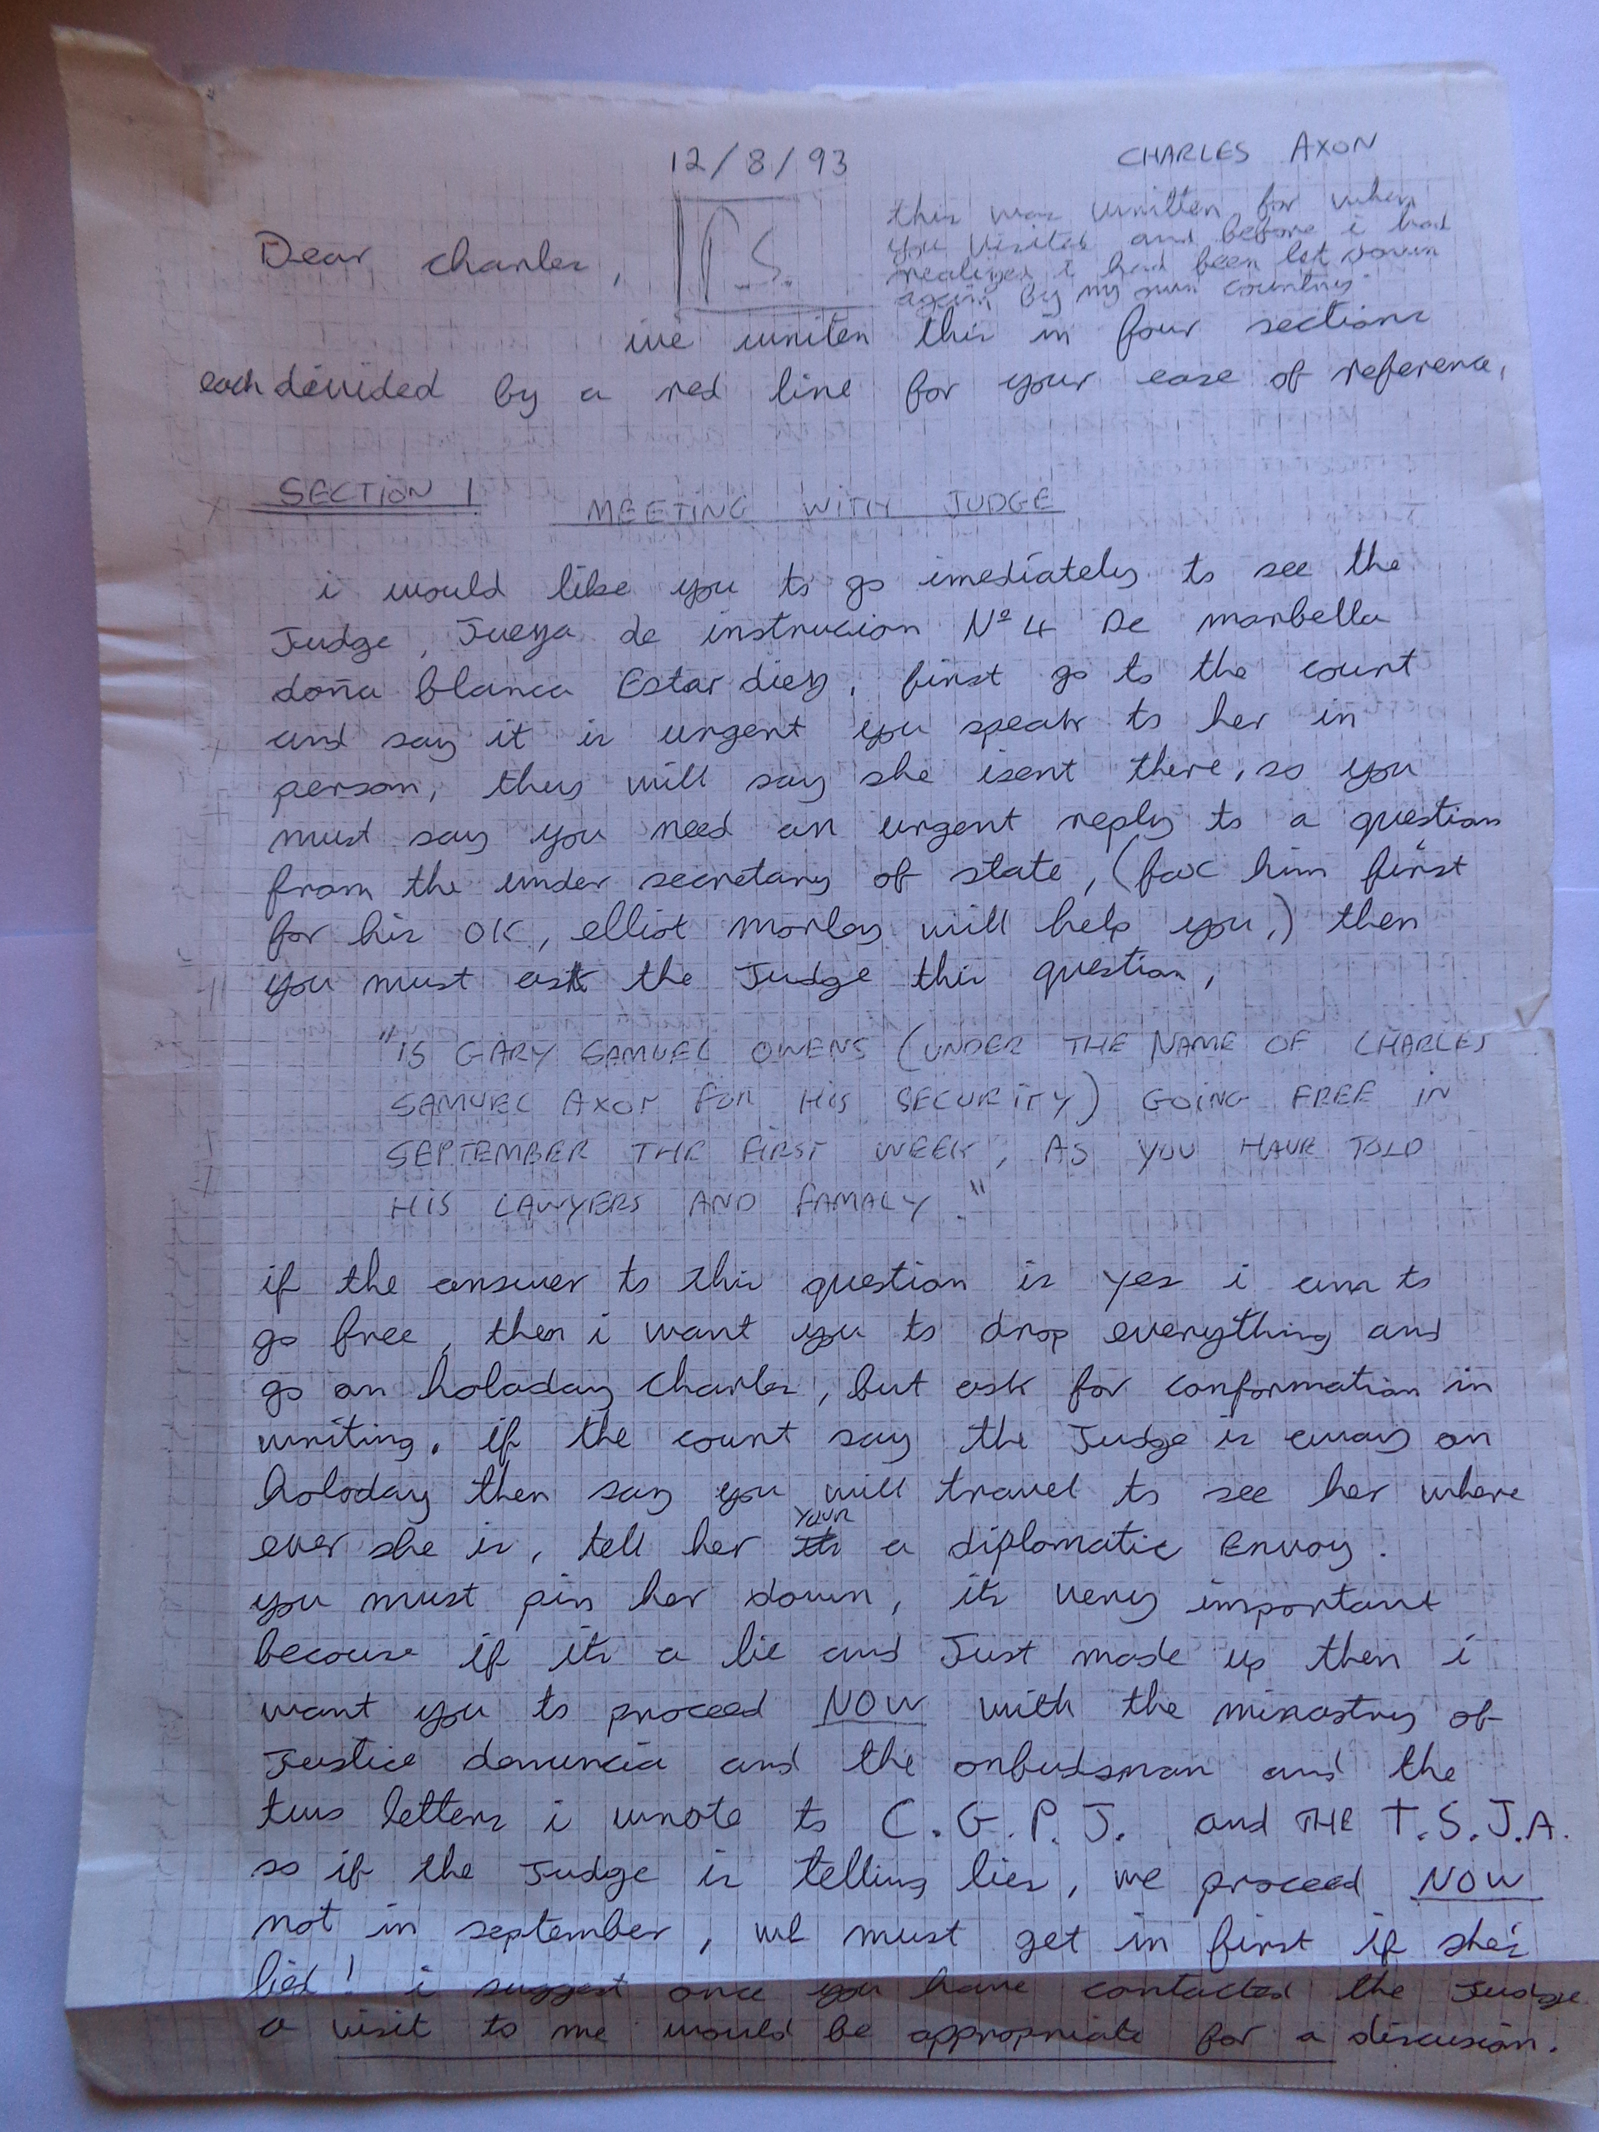 12/8/93
CHARLES AXON
Dear charles,
P.S.
this was written for when
you visited and before i had
realized i had been let down
again by my own country.
ive writen this in four sections
each devided by a red line for your ease of reference,
SECTION 1 MEETING WITH JUDGE
i would like you to go imediately to see the
Judge, Jueza de instrucion Nº 4 De marbella
doña blanca Estar diez, first go to the court
and say it is urgent you speak to her in
person, they will say she isent there, so you
must say you need an urgent reply to a question
from the under secretary of state, (fax him first
for his OK, elliot morley will help you,) then
you must ask the Judge this question,
"IS GARY SAMUEL OWENS (UNDER THE NAME OF CHARLES
SAMUEL AXON FOR HIS SECURITY) GOING FREE IN
SEPTEMBER THE FIRST WEEK, AS YOU HAVE TOLD
HIS LAWYERS AND FAMALY."
if the answer to this question is yes i am to
go free, then i want you to drop everything and
go on holaday charles, but ask for conformation in
writing. if the court say the Judge is away on
holoday then say you will travel to see her where
ever she is, tell her YOUR a diplomatic Envoy.
you must pin her down, its very important
becouse if its a lie and Just made up then i
want you to proceed NOW with the minastry of
Justice denuncia and the onbudsman and the
two letters i wrote to C.G.P.J. and THE T.S.J.A.
so if the Judge is telling lies, we proceed NOW
not in september, we must get in first if she's
lied! i suggest once you have contacted the Judge
a visit to me would be appropriate for a discusion.